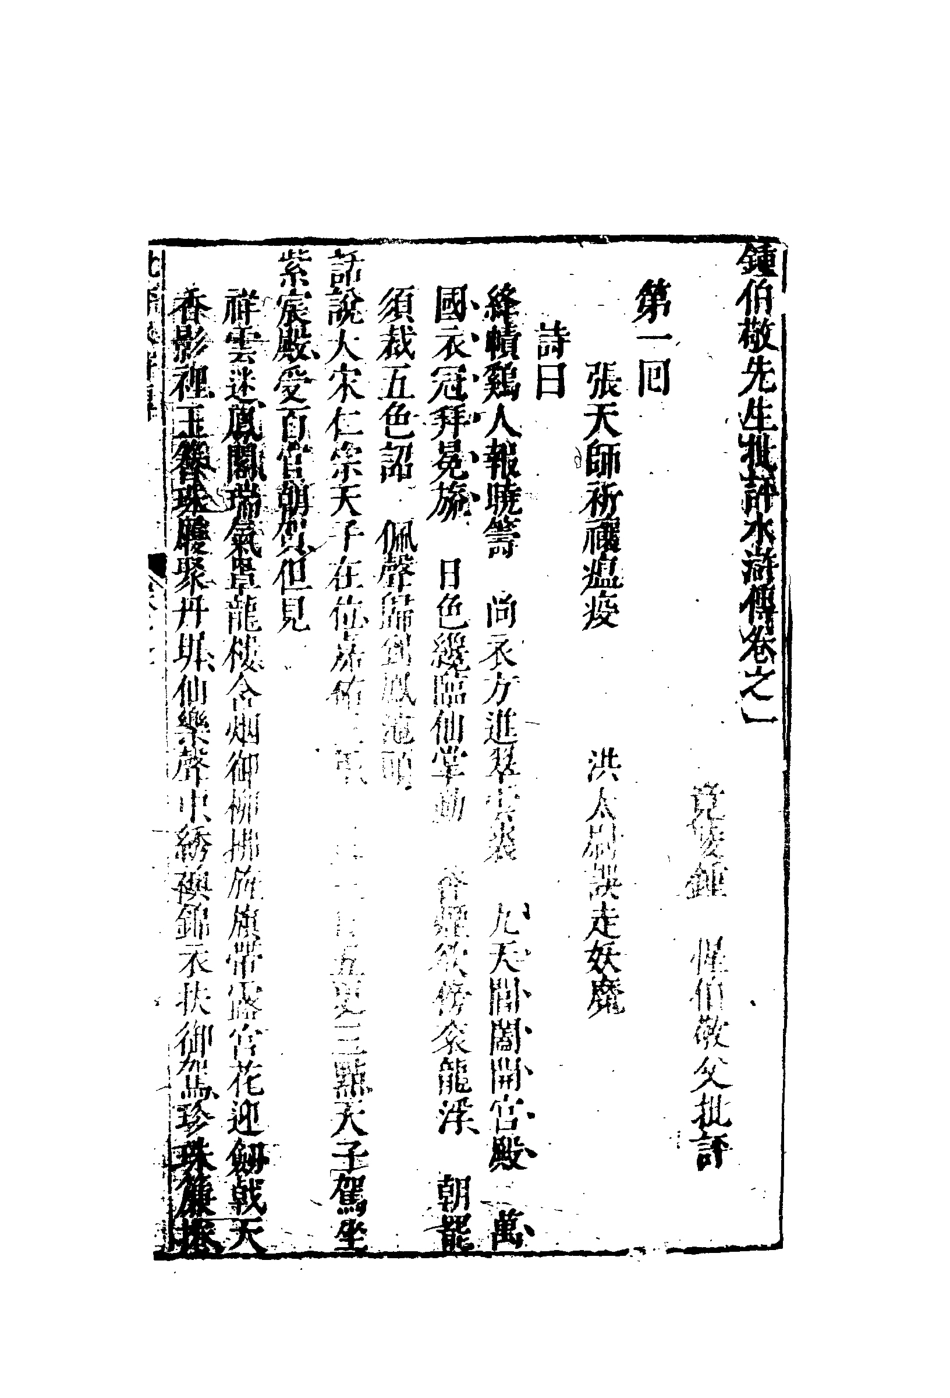 鍾伯敬先生批評水滸傳卷之一
竟陵鍾 惺伯敬父批評
第一回
張天師祈禳瘟疫 洪太尉誤走妖魔
詩曰
絳幘鷄人報曉籌 尚衣方進翠雲裘 九天閶闔開宮殿 萬
國衣冠拜冕旒 日色纔臨仙掌動 香煙欲傍袞龍浮 朝罷
須裁五色詔 佩聲歸到鳳池頭
話說大宋仁宗天子在位嘉佑三年 五更三點天子駕坐
紫宸殿受百官朝賀但見
祥雲迷鳳閣瑞氣罩龍樓含烟御柳拂旌旗帶露宮花迎劒戟天
香影裡玉簪珠履聚丹墀仙樂聲中綉襖錦衣扶御駕珍珠簾捲